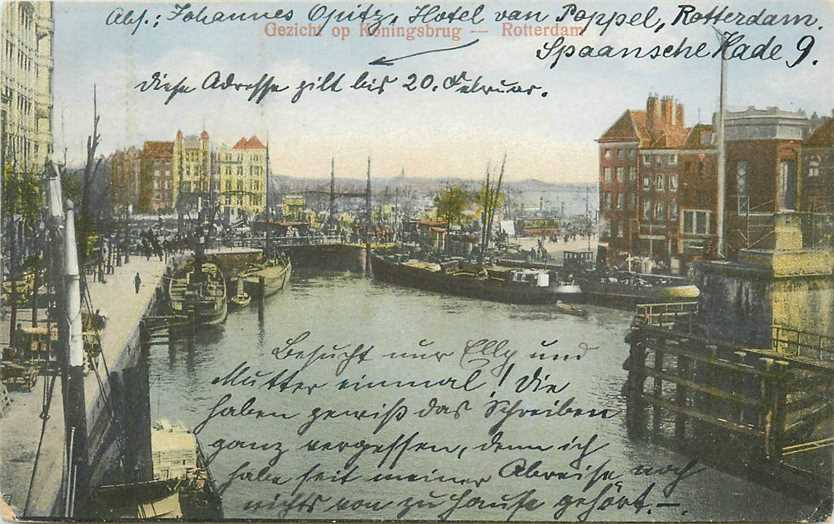 Abs.: Johannes Opitz, Hotel van Poppel, Rotterdam.
Gezicht op Koningsbrug — Rotterdam
Spaansche Kade 9.
diese Adresse gilt bis 20. Februar.
Besucht nur Elly und
Mutter einmal! Die
haben gewiß das Schreiben
ganz vergessen, denn ich
habe seit meiner Abreise noch
nichts von zu Hause gehört.–.